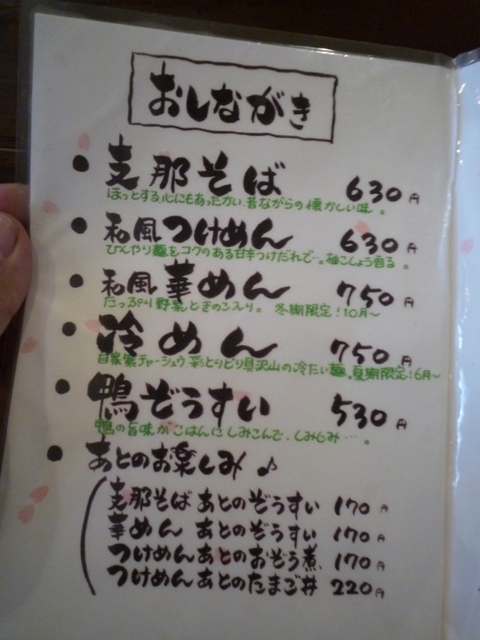 おしながき
● 支那そば 630円
ほっとする、心にもあったかい、昔ながらの懐かしい味。
● 和風つけめん 630円
ひんやり麺をコクのある甘辛つけだれで…。柚こしょう香る。
● 和風華めん 750円
たっぷり野菜ときのこ入り。 冬期限定!10月~
● 冷めん 750円
自家製チャーシュウ、彩とりどり具沢山の冷たい麺。夏期限定!6月~
● 鴨ぞうすい 530円
鴨の旨味がごはんにしみこんで、しみじみ…。
● あとのお楽しみ♪
支那そばあとのぞうすい 170円
華めん あとのぞうすい 170円
つけめんあとのおぞう煮 170円
つけめんあとのたまご丼 220円